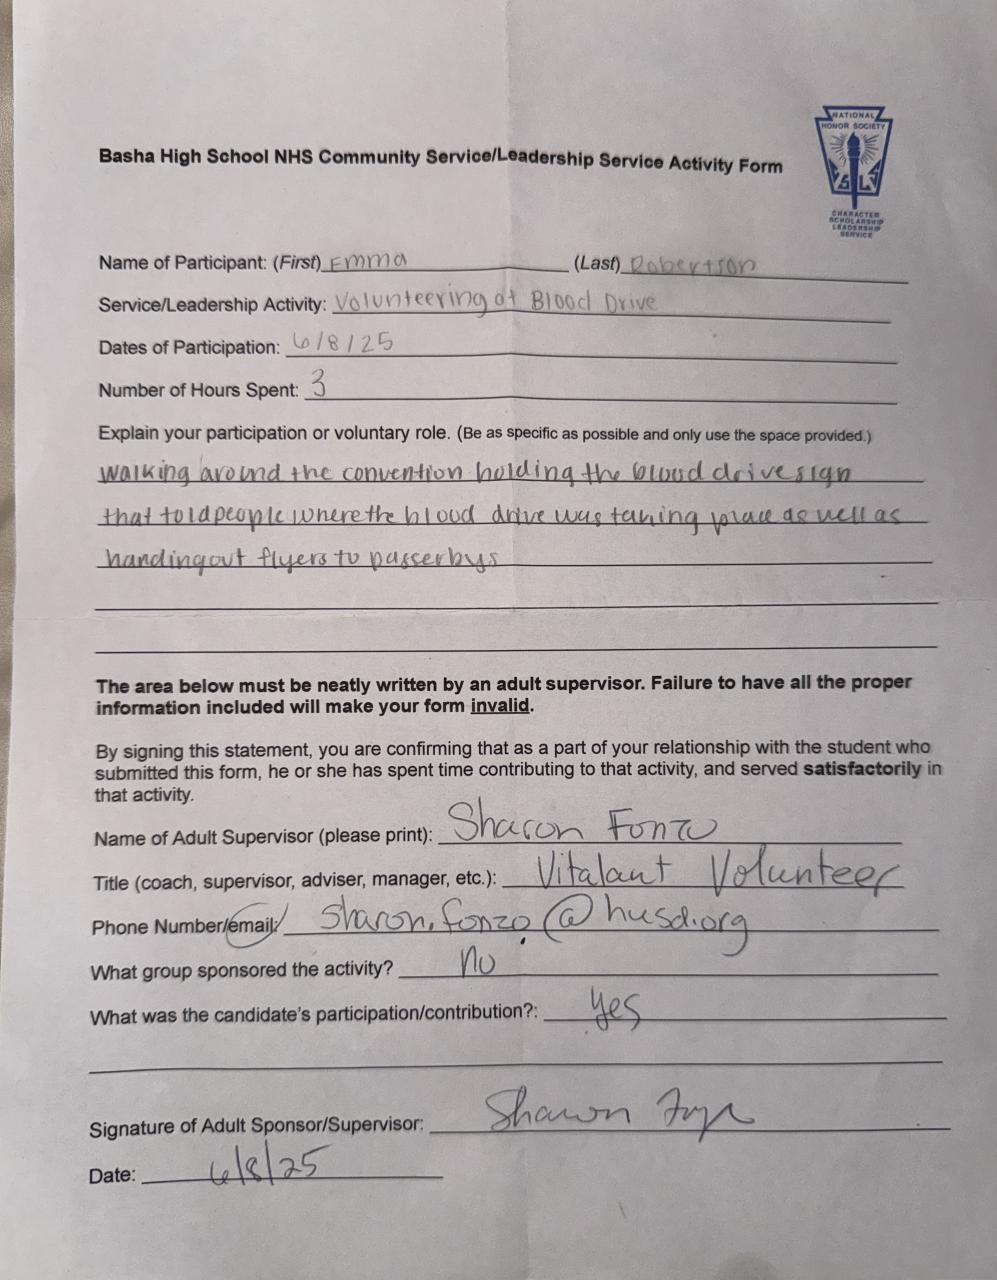 NATIONAL
HONOR SOCIETY
CHARACTER
SCHOLARSHIP
LEADERSHIP
SERVICE
Basha High School NHS Community Service/Leadership Service Activity Form
Name of Participant: (First) Emma (Last) Robertson
Service/Leadership Activity: Volunteering at Blood Drive
Dates of Participation: 6/8/25
Number of Hours Spent: 3
Explain your participation or voluntary role. (Be as specific as possible and only use the space provided.)
walking around the convention holding the blood drive sign
that told people where the blood drive was taking place as well as
handing out flyers to passerbys
The area below must be neatly written by an adult supervisor. Failure to have all the proper
information included will make your form invalid.
By signing this statement, you are confirming that as a part of your relationship with the student who
submitted this form, he or she has spent time contributing to that activity, and served satisfactorily in
that activity.
Name of Adult Supervisor (please print): Sharon Fonzo
Title (coach, supervisor, adviser, manager, etc.): Vitalant Volunteer
Phone Number/email: sharon.fonzo@husd.org
What group sponsored the activity? no
What was the candidate's participation/contribution?: yes
Signature of Adult Sponsor/Supervisor: Sharon
Date: 6/8/25